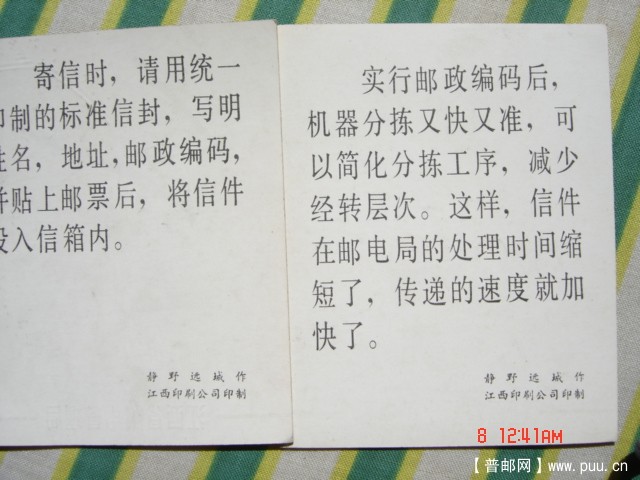 寄信时，请用统一
印制的标准信封，写明
姓名，地址，邮政编码，
并贴上邮票后，将信件
投入信箱内。
江西印刷公司印制
实行邮政编码后，
机器分拣又快又准，可
以简化分拣工序，减少
经转层次。这样，信件
在邮电局的处理时间缩
短了，传递的速度就加
快了。
江西印刷公司印制
8 12:41AM
【普邮网】www.puu.cn